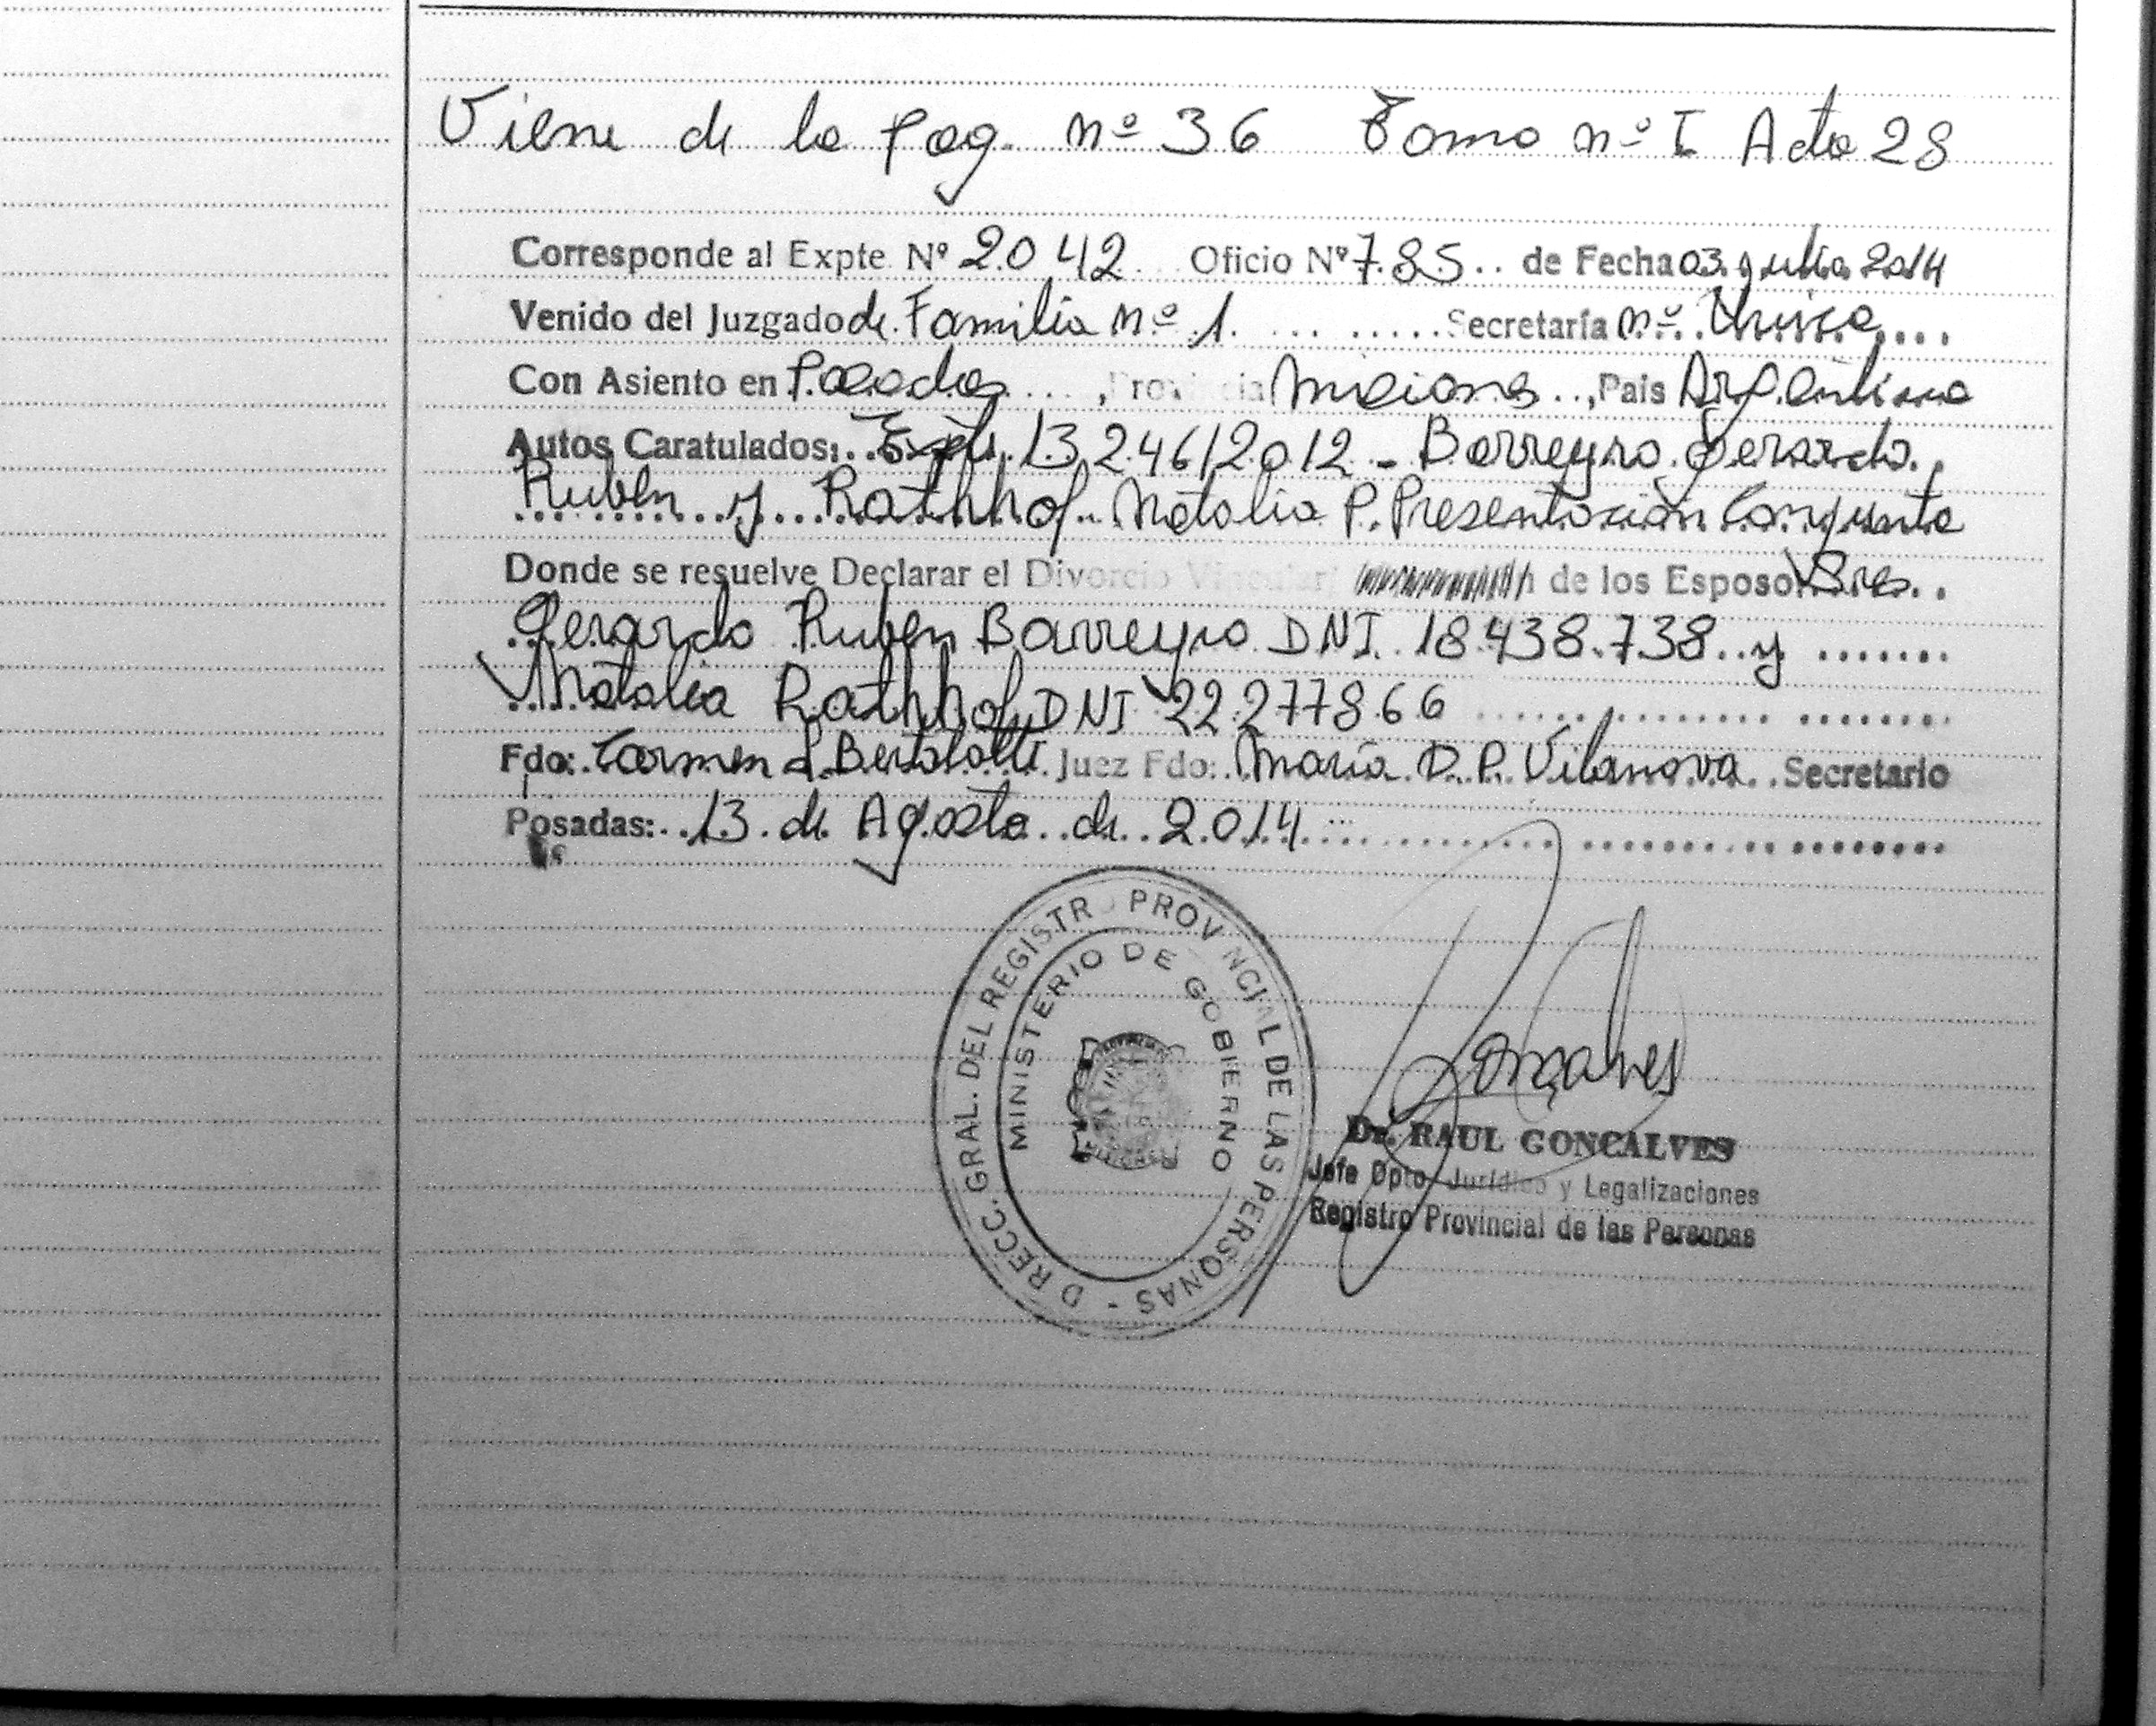 Viene de la Pag. nº 36 Tomo nº I Acta 28
Corresponde al Expte Nº 2042 Oficio Nº 785 de Fecha 03 julio 2014
Venido del Juzgado de Familia nº 1 Secretaría nº Unica
Con Asiento en Posadas, Provincia Misiones, País Argentina
Autos Caratulados: Expte 13246/2012 - Barreyro Gerardo
Ruben y Rathhof Natalia P. Presentación Conjunta
Donde se resuelve Declarar el Divorcio Vincular de los Esposos Sres.
Gerardo Ruben Barreyro DNI 18.438.738 y
Natalia Rathhof DNI 22.277866
Fdo: Carmen Bertolotti Juez Fdo: María D. P. Vilanova Secretario
Posadas: 13 de Agosto de 2014
DIRECC. GRAL. DEL REGISTRO PROVINCIAL DE LAS PERSONAS -
MINISTERIO DE GOBIERNO
Gonçalves
Dr. RAUL GONCALVES
Jefe Dpto. Jurídico y Legalizaciones
Registro Provincial de las Personas